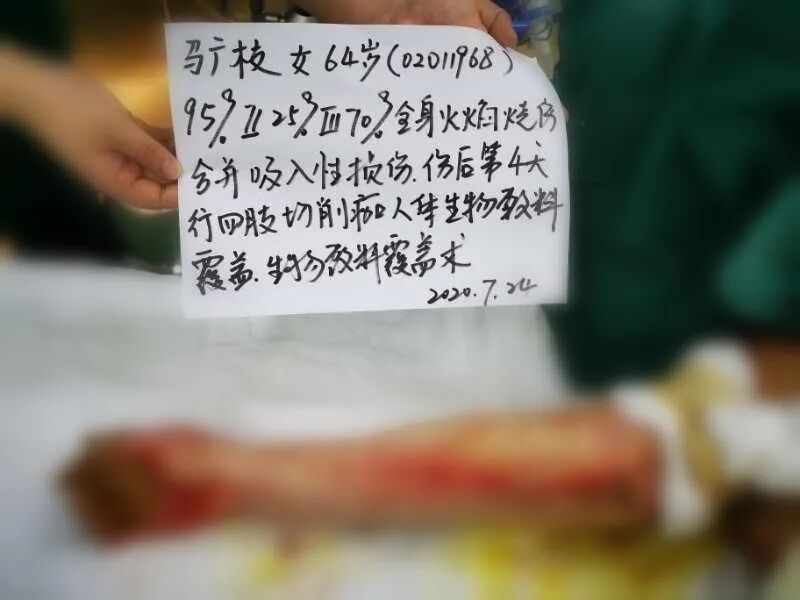 马广枝 女 64岁(02011968)
95% II 25% III 70% 全身火焰烧伤
合并吸入性损伤.伤后第4天
行四肢切削痂人体生物敷料
覆盖.生物敷料覆盖术
2020.7.24